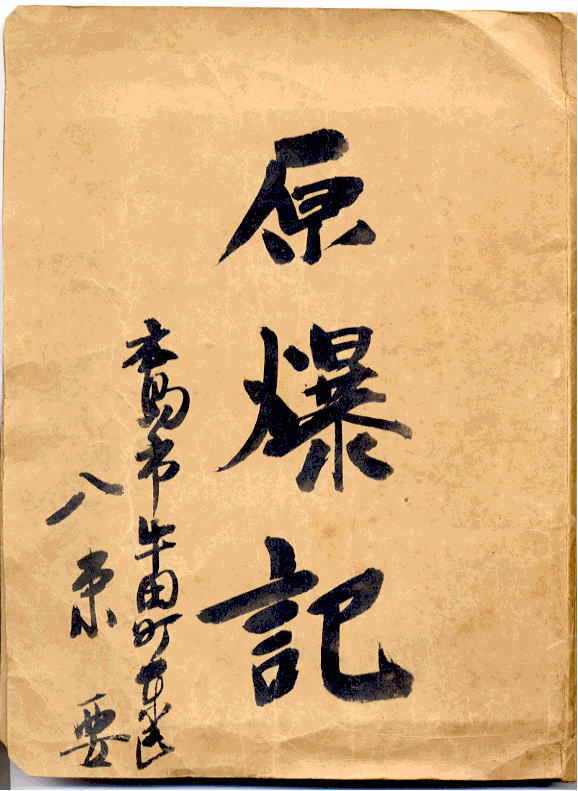 原爆記
広島市牛田町
八束要